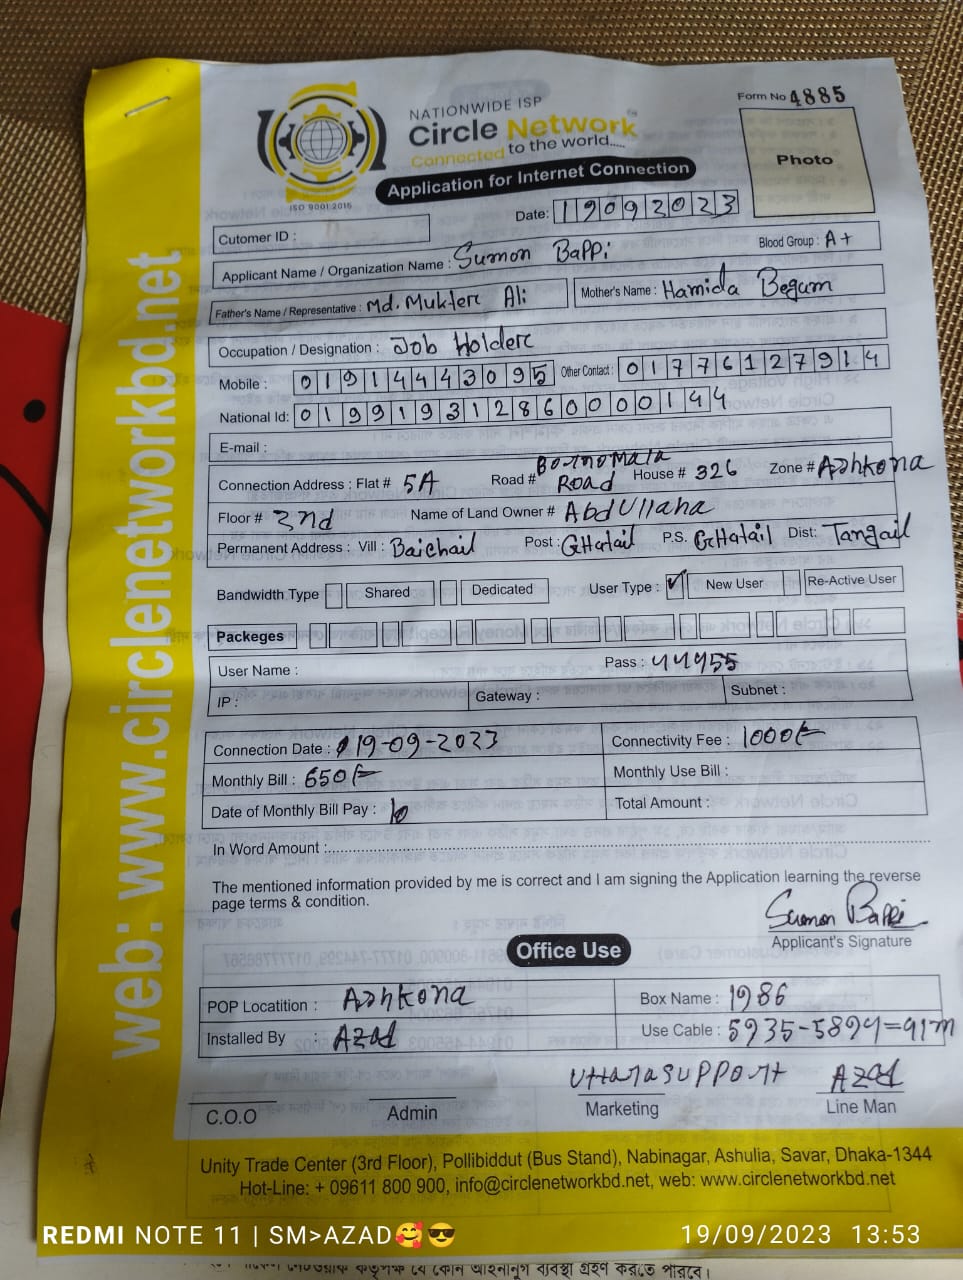 Form No 4885
NATIONWIDE ISP
Circle Network™
Connected to the world.....
ISO 9001:2015
Application for Internet Connection
Photo
Date: 19092023
Cutomer ID :
Applicant Name / Organization Name : Sumon Bappi Blood Group : A+
Father's Name / Representative : Md. Mukter Ali Mother's Name : Hamida Begum
Occupation / Designation : Job Holder
Mobile : 01914443095 Other Contact : 01776127914
National Id: 019919312860000144
E-mail :
Connection Address : Flat # 5A Road # Bornomala Road House # 326 Zone # Ashkona
Floor # 3nd Name of Land Owner # Abdullaha
Permanent Address : Vill : Baichail Post : GHatail P.S. GHatail Dist: Tangail
Bandwidth Type Shared Dedicated User Type : ✓ New User Re-Active User
Packeges
User Name : Pass : 44955
IP : Gateway : Subnet :
Connection Date : 19-09-2023 Connectivity Fee : 1000/-
Monthly Bill : 650/- Monthly Use Bill :
Date of Monthly Bill Pay : 10 Total Amount :
In Word Amount :
The mentioned information provided by me is correct and I am signing the Application learning the reverse
page terms & condition.
Sumon Bappi
Applicant's Signature
Office Use
POP Locatition : Ashkona Box Name : 1986
Installed By : Azad Use Cable : 5935-5894=41m
Uttara support Azad
C.O.O Admin Marketing Line Man
Unity Trade Center (3rd Floor), Pollibiddut (Bus Stand), Nabinagar, Ashulia, Savar, Dhaka-1344
Hot-Line: + 09611 800 900, info@circlenetworkbd.net, web: www.circlenetworkbd.net
web: www.circlenetworkbd.net
REDMI NOTE 11 | SM>AZAD🥰😎 19/09/2023 13:53
যে কোন আইনানুগ ব্যবস্থা গ্রহণ করতে পারবে।